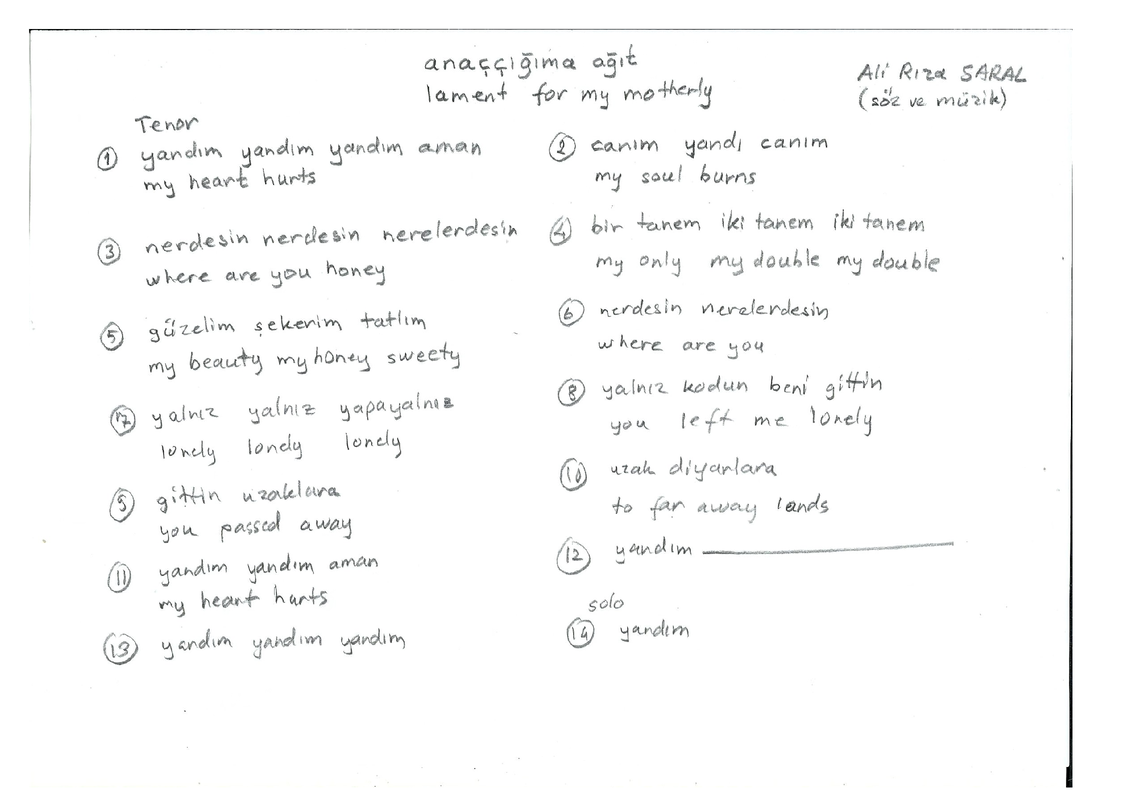 anaççiğıma ağıt
lament for my motherly
Ali Rıza SARAL
(söz ve müzik)
Tenor
1 yandım yandım yandım aman
my heart hurts
2 canım yandı canım
my soul burns
3 nerdesin nerdesin nerelerdesin
where are you honey
4 bir tanem iki tanem iki tanem
my only my double my double
5 güzelim şekerim tatlım
my beauty my honey sweety
6 nerdesin nerelerdesin
where are you
7 yalnız yalnız yapayalnız
lonely lonely lonely
8 yalnız kodun beni gittin
you left me lonely
9 gittin uzaklara
you passed away
10 uzak diyarlara
to far away lands
11 yandım yandım aman
my heart hurts
12 yandım
13 yandım yandım yandım
solo
14 yandım